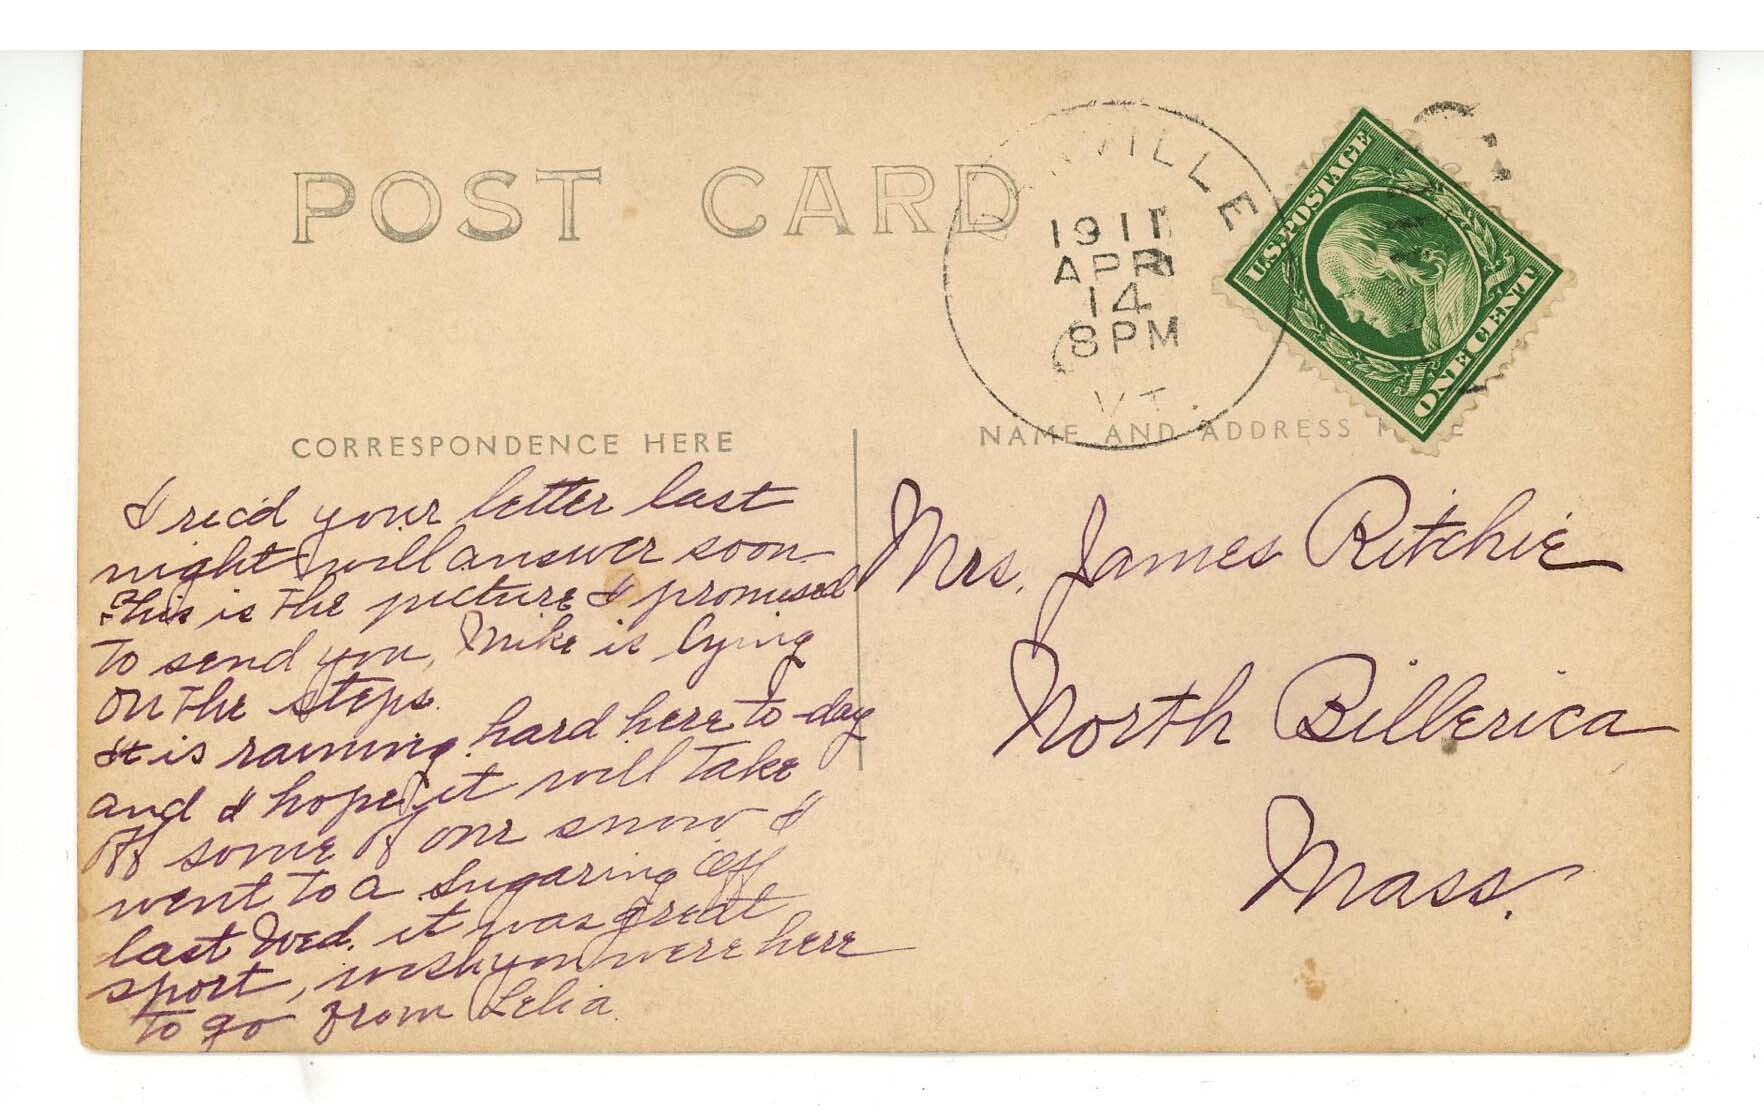 POST CARD
VILLE
1911
APR
14
8 PM
VT.
U.S. POSTAGE
ONE CENT
CORRESPONDENCE HERE
NAME AND ADDRESS
I rec'd your letter last
night will answer soon
This is the picture I promised
to send you, Mike is lying
on the steps.
It is raining hard here to-day
and I hope it will take
off some of our snow I
went to a sugaring off
last Wed. it was great
sport, wish you were here
to go from Lelia
Mrs. James Ritchie
North Billerica
Mass.